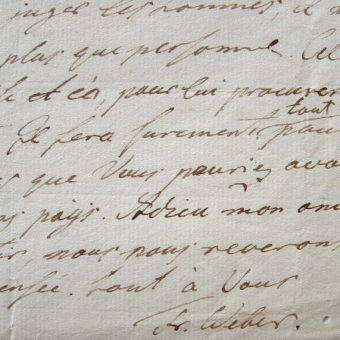 juger les hommes, il
plus que personne.
et là, pour lui procurer
Je sera surement tout
que Vous pouriez
pays. Adieu mon
nous nous reverons
tout à Vous
Fr. Weber.